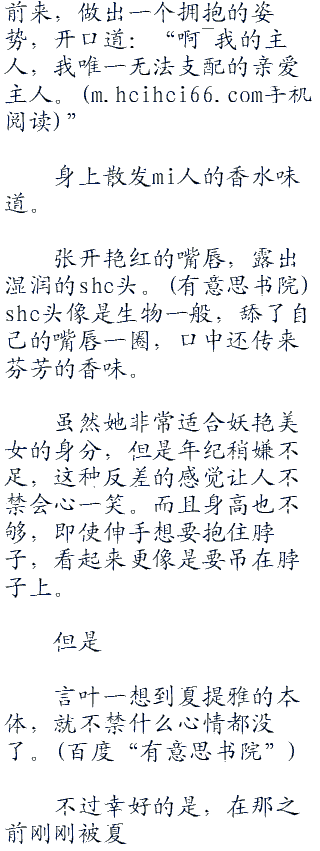 前来，做出一个拥抱的姿
势，开口道：“啊¯我的主
人，我唯一无法支配的亲爱
主人。(m.hcihci66.com手机
阅读)”
身上散发mi人的香水味
道。
张开艳红的嘴唇，露出
湿润的shc头。(有意思书院)
shc头像是生物一般，舔了自
己的嘴唇一圈，口中还传来
芬芳的香味。
虽然她非常适合妖艳美
女的身分，但是年纪稍嫌不
足，这种反差的感觉让人不
禁会心一笑。而且身高也不
够，即使伸手想要抱住脖
子，看起来更像是要吊在脖
子上。
但是
言叶一想到夏提雅的本
体，就不禁什么心情都没
了。(百度“有意思书院”)
不过幸好的是，在那之
前刚刚被夏